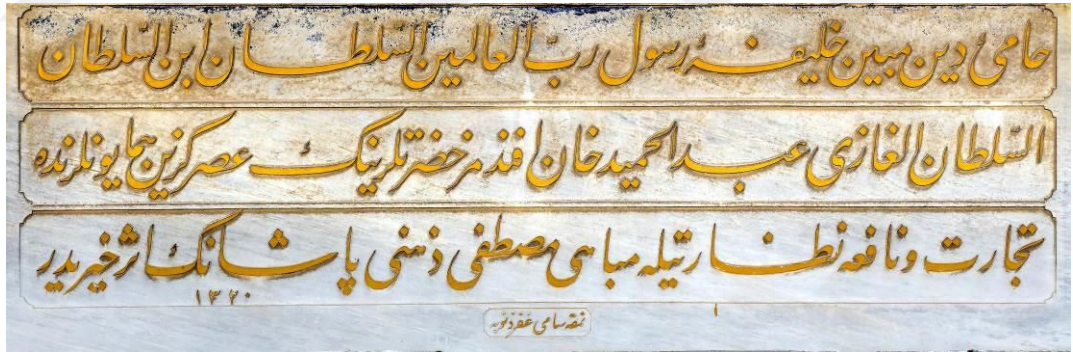 حامئ دين مبين خليفۀ رسول رب العالمين السلطان ابن السلطان
السلطان الغازى عبد الحميد خان افندمز حضرتلرينك عصر گزين همايونلرنده
تجارت ونافعه نظارتيله مباهى مصطفى ذهنى پاشانك اثر خيريدر
١٣٢٠
نمقه سامى غفر ذنوبه